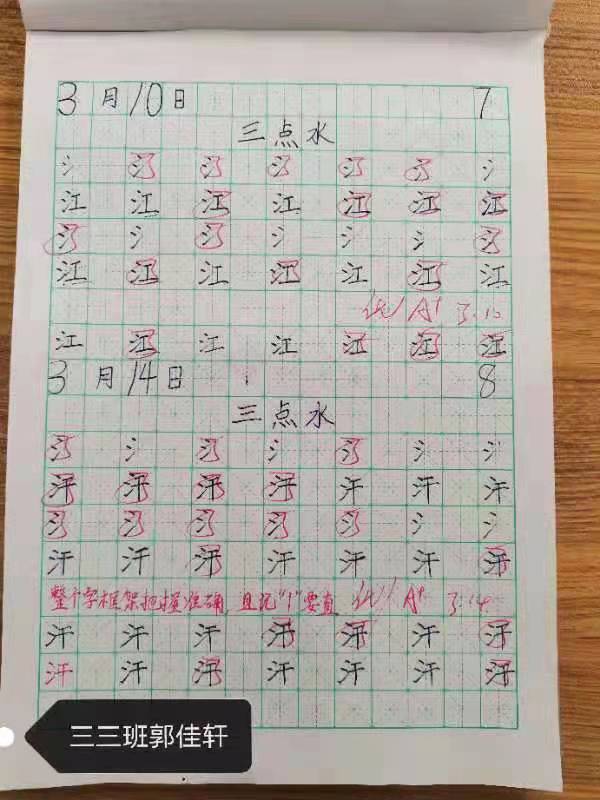 3月10日 7
三点水
氵 氵 氵 氵 氵 氵 氵
江 江 江 江 江 江 江
氵 氵 氵 氵 氵 氵 氵
江 江 江 江 江 江 江
优 A+ 3.10
江 江 江 江 江 江 江
3月14日 8
三点水
氵 氵 氵 氵 氵 氵 氵
汗 汗 汗 汗 汗 汗 汗
氵 氵 氵 氵 氵 氵 氵
汗 汗 汗 汗 汗 汗 汗
整个字框架把握准确,且记"丨"要直 优 A+ 3.14
汗 汗 汗 汗 汗 汗 汗
汗 汗 汗 汗 汗 汗 汗
三三班郭佳轩